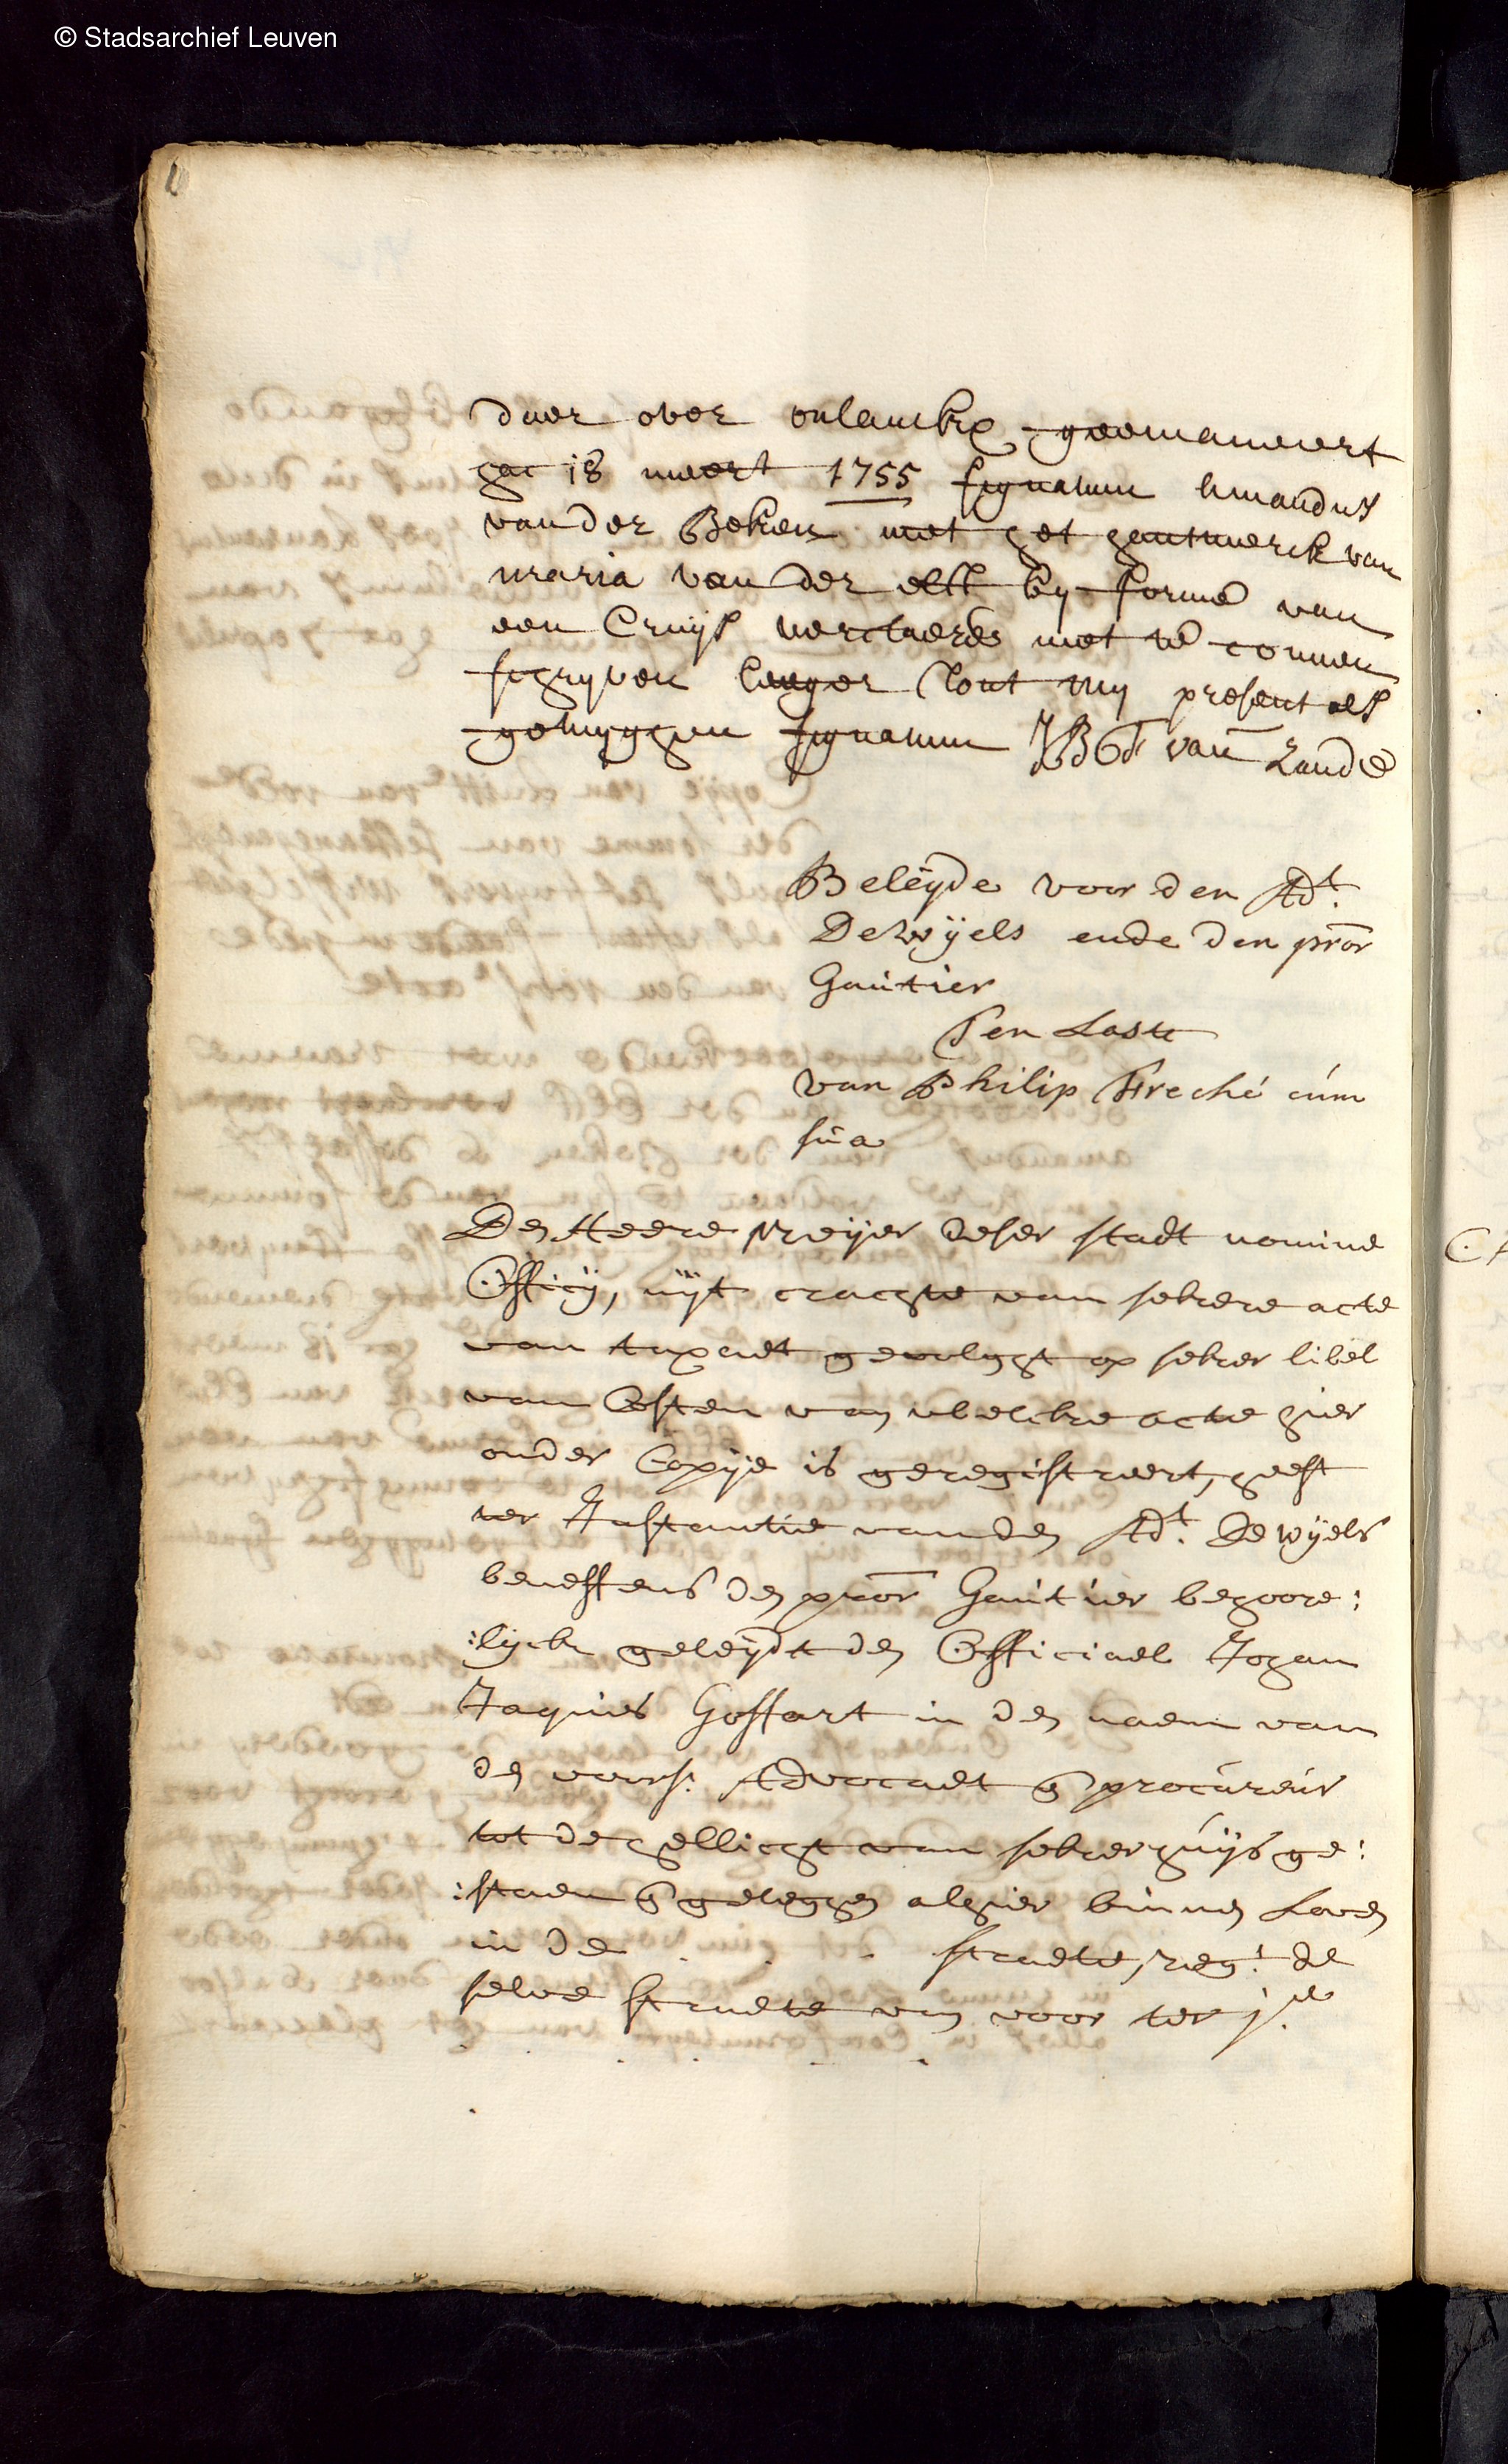 © Stadsarchief Leuven
daer over onlanckx geemaneert
hac 18 meert 1755 signatum Amandus
vander Beken met het hantmerck van
maria van der elst by forme van
een Cruijs verclaerde niet te connen
schryven leeger stont my present als
getuyghen signatum JBG van Zande
Beleyde voor den Adt.
De Wijels ende den pror
Gautier
Ten Laste
van Philip Freché cum
sua
Den Heere Meijer deser stadt nomine
Officij, uijt crachte van sekere acte
van taxaet gevolght op sekere libel
van Costen van welcke acte hier
onder Copije is geregistreert, heeft
ter Instantie vanden Adt. De Wijels
beneffens den pror Gautier behoore:
:lijck geleijdt den Officiael Johan
Jaques Goffart in den naem van
den voors. Advocaet en procureur
tot de hellicht van seker huijs ge:
:staen en gelegen alhier binnen Loven
in de straete, reg.t de
selve straete van voor ter j.re